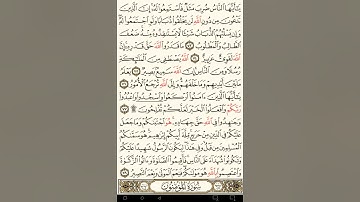 يَٰٓأَيُّهَا ٱلنَّاسُ ضُرِبَ مَثَلٌ فَٱسْتَمِعُوا۟ لَهُۥٓ إِنَّ ٱلَّذِينَ
تَدْعُونَ مِن دُونِ ٱللَّهِ لَن يَخْلُقُوا۟ ذُبَابًا وَلَوِ ٱجْتَمَعُوا۟ لَهُۥ
وَإِن يَسْلُبْهُمُ ٱلذُّبَابُ شَيْـًٔا لَّا يَسْتَنقِذُوهُ مِنْهُ ضَعُفَ
ٱلطَّالِبُ وَٱلْمَطْلُوبُ ٧٣ مَا قَدَرُوا۟ ٱللَّهَ حَقَّ قَدْرِهِۦٓ إِنَّ
ٱللَّهَ لَقَوِىٌّ عَزِيزٌ ٧٤ ٱللَّهُ يَصْطَفِى مِنَ ٱلْمَلَٰٓئِكَةِ
رُسُلًا وَمِنَ ٱلنَّاسِ إِنَّ ٱللَّهَ سَمِيعٌۢ بَصِيرٌ ٧٥ يَعْلَمُ
مَا بَيْنَ أَيْدِيهِمْ وَمَا خَلْفَهُمْ وَإِلَى ٱللَّهِ تُرْجَعُ ٱلْأُمُورُ ٧٦
يَٰٓأَيُّهَا ٱلَّذِينَ ءَامَنُوا۟ ٱرْكَعُوا۟ وَٱسْجُدُوا۟ وَٱعْبُدُوا۟
رَبَّكُمْ وَٱفْعَلُوا۟ ٱلْخَيْرَ لَعَلَّكُمْ تُفْلِحُونَ ۩ ٧٧
وَجَٰهِدُوا۟ فِى ٱللَّهِ حَقَّ جِهَادِهِۦ هُوَ ٱجْتَبَىٰكُمْ وَمَا جَعَلَ
عَلَيْكُمْ فِى ٱلدِّينِ مِنْ حَرَجٍ مِّلَّةَ أَبِيكُمْ إِبْرَٰهِيمَ هُوَ سَمَّىٰكُمُ
ٱلْمُسْلِمِينَ مِن قَبْلُ وَفِى هَٰذَا لِيَكُونَ ٱلرَّسُولُ شَهِيدًا عَلَيْكُمْ
وَتَكُونُوا۟ شُهَدَآءَ عَلَى ٱلنَّاسِ فَأَقِيمُوا۟ ٱلصَّلَوٰةَ وَءَاتُوا۟ ٱلزَّكَوٰةَ
وَٱعْتَصِمُوا۟ بِٱللَّهِ هُوَ مَوْلَىٰكُمْ فَنِعْمَ ٱلْمَوْلَىٰ وَنِعْمَ ٱلنَّصِيرُ ٧٨
سُورَةُ المُؤْمِنُونَ